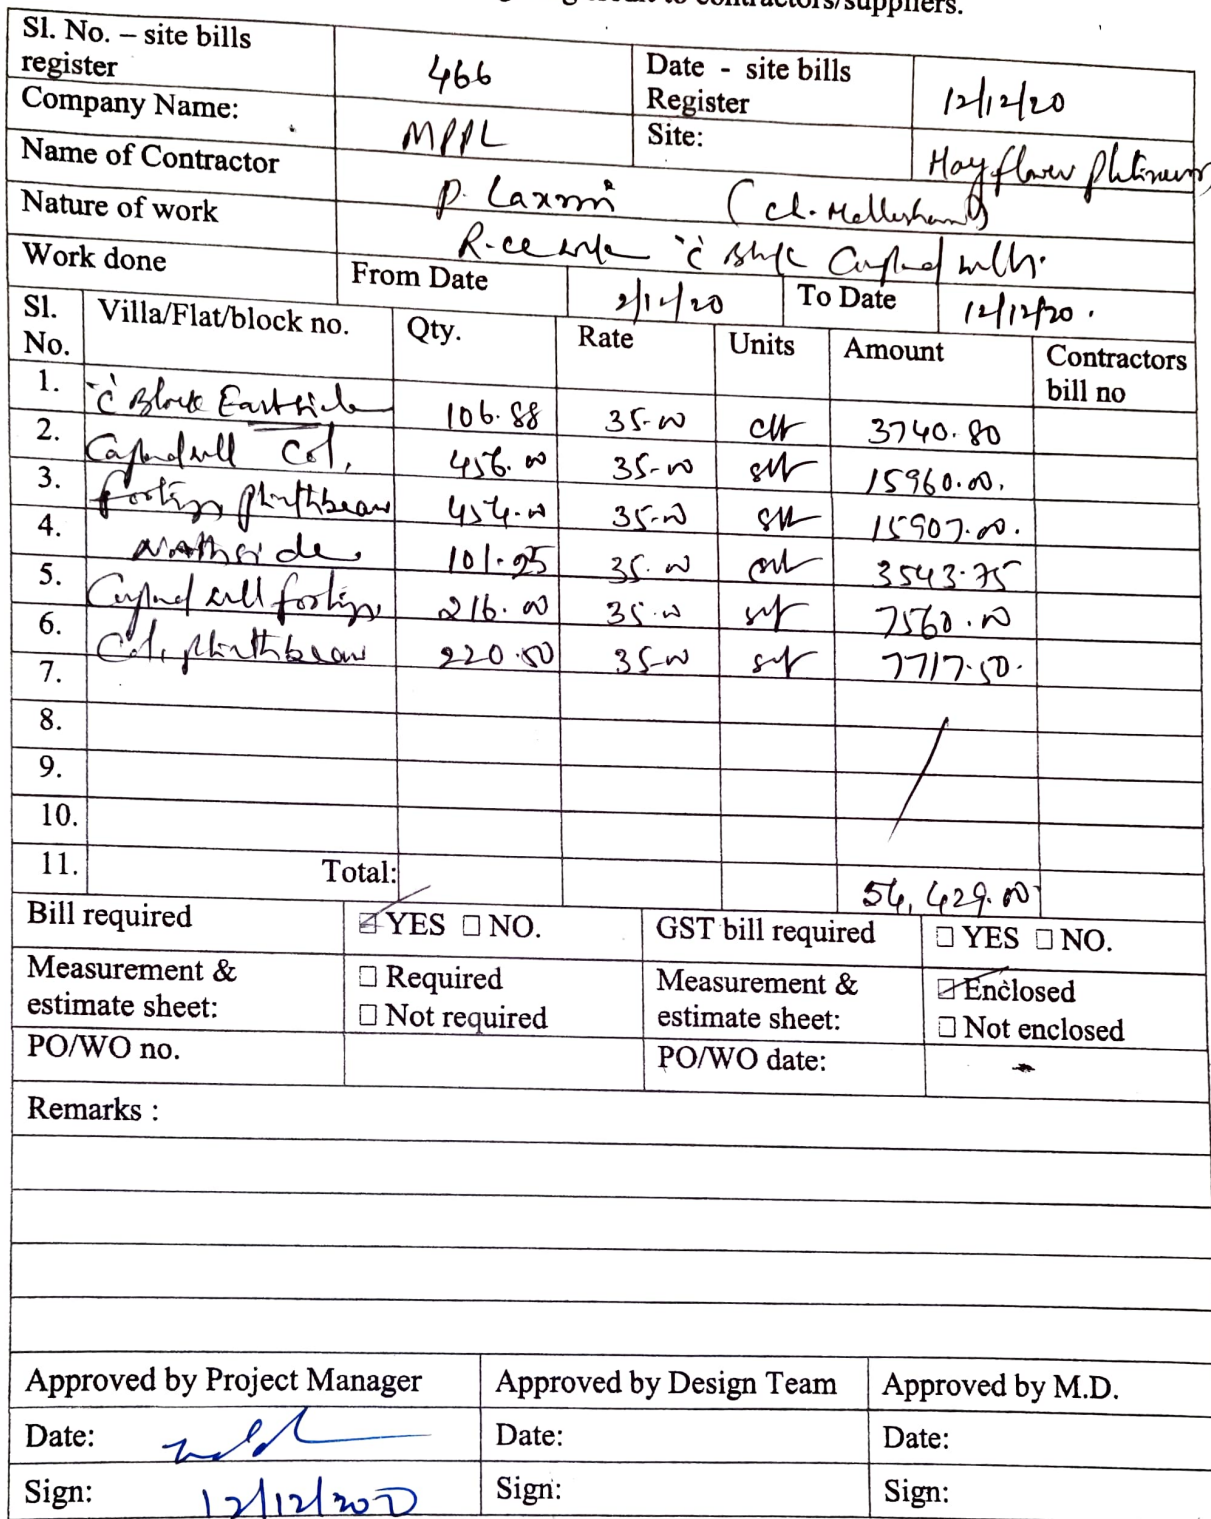 contractors/suppliers.
Sl. No. – site bills register 466 Date - site bills Register 12/12/20
Company Name: MPPL Site:
Name of Contractor P. Laxmi
Nature of work 'C'
Work done From Date 2/12/20 To Date 12/12/20.
Sl. No. Villa/Flat/block no. Qty. Rate Units Amount Contractors bill no
1. 'C' Block East side 106.88 35-00 cft 3740.80
2. Col, 456.00 35-00 sft 15960.00.
3. footing plinthbeam 35-00 sft 15907.00.
4. North side 35.00 3543.75
5. footing 216.00 35.00 sft 7560.00
6. Col, plinthbeam 220.50 35-00 sft 7717.50.
7.
8.
9.
10.
11. Total: 54,429.00
Bill required ☑ YES □ NO. GST bill required □ YES □ NO.
Measurement & estimate sheet: □ Required □ Not required Measurement & estimate sheet: ☑ Enclosed □ Not enclosed
PO/WO no. PO/WO date:
Remarks :
Approved by Project Manager Approved by Design Team Approved by M.D.
Date: Date: Date:
Sign: 12/12/2020 Sign: Sign: